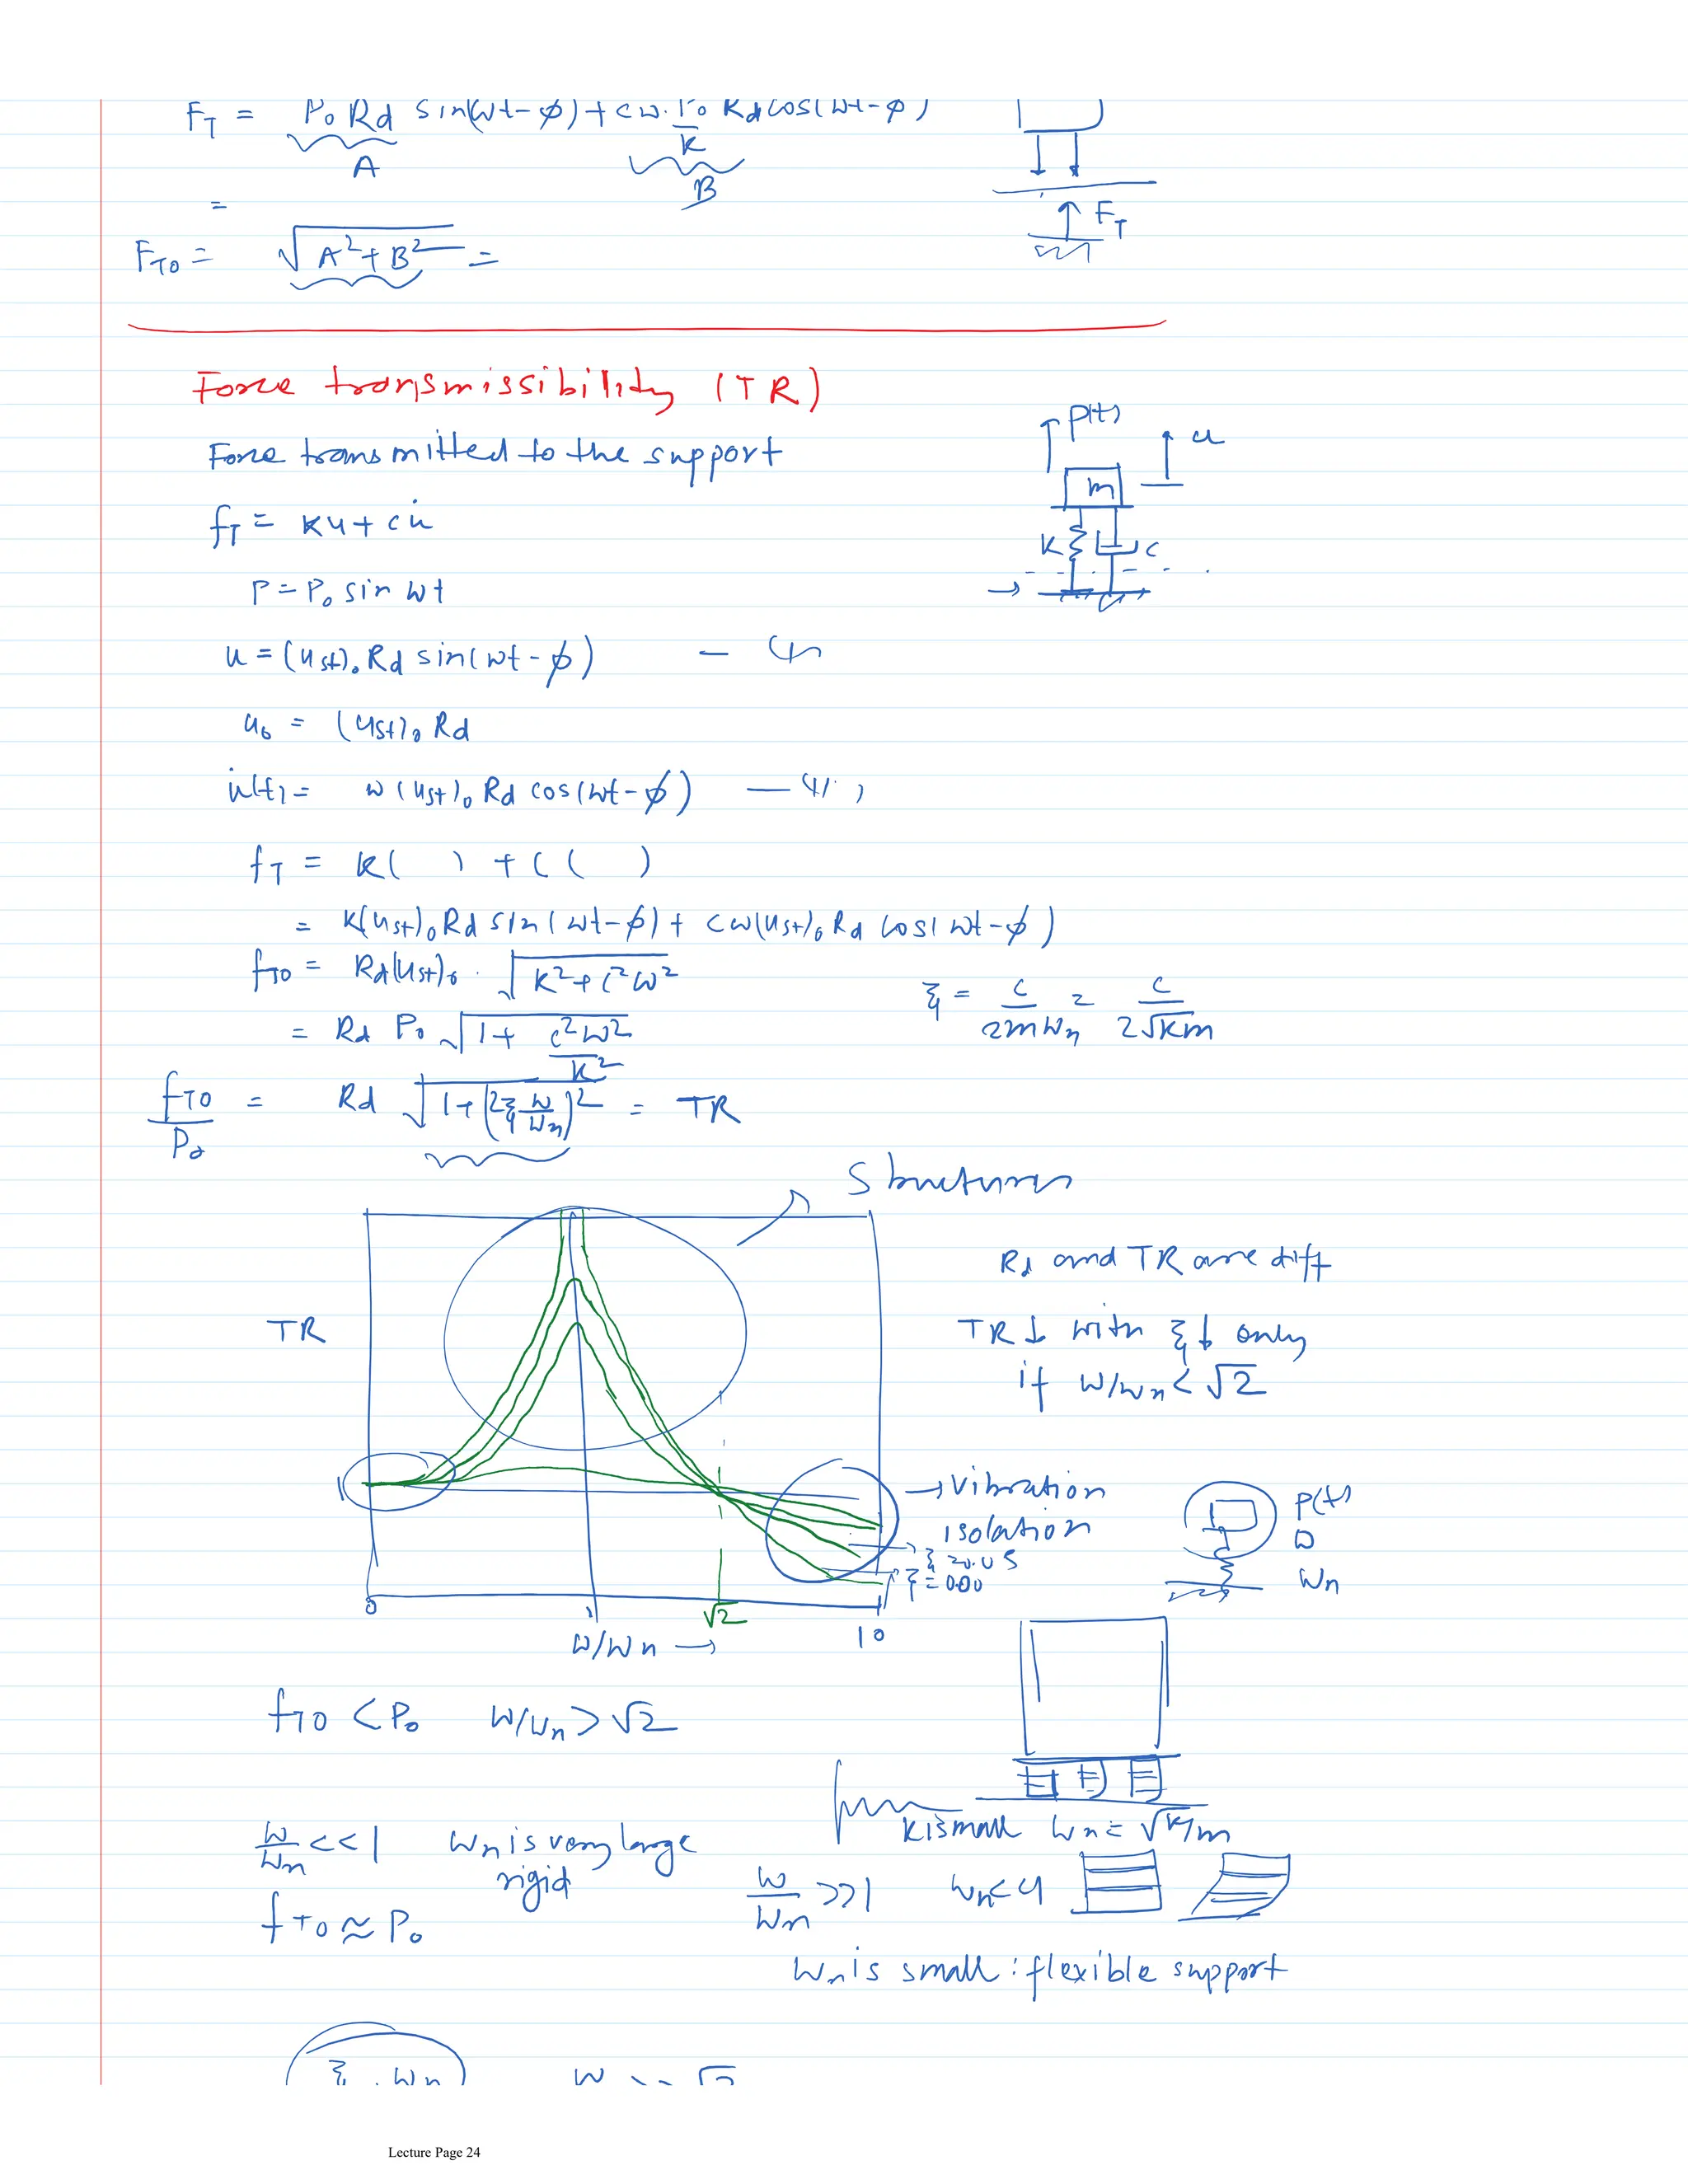 F_T = P₀ Rd sin(ωt-φ) + cω. P₀/K Rd cos(ωt-φ)
A
B
=
F_T0 = √(A²+B²) =
F_T
Force transmissibility (TR)
Force transmitted to the support
f_T = Ku + cu̇
P = P₀ sin ωt
P(t)
u
m
K
c
u = (u_st)₀ Rd sin(ωt-φ) —
u₀ = (u_st)₀ Rd
u̇(t) = ω(u_st)₀ Rd cos(ωt-φ) —
f_T = K( ) + C( )
= K(u_st)₀ Rd sin(ωt-φ) + cω(u_st)₀ Rd cos(ωt-φ)
f_T0 = Rd(u_st)₀ · √(K²+C²ω²)
= Rd P₀ √(1+ c²ω²/K²)
ξ = c/2mωn = c/2√Km
f_T0/P₀ = Rd √(1+(2ξ ω/ωn)²) = TR
Structures
TR
1
0
1
√2
10
ω/ωn →
Rd and TR are diff
TR ↓ with ξ ↓ only
if ω/ωn < √2
→ Vibration
isolation
ξ = 0.05
ξ = 0.00
P(t)
ω
ωn
f_T0 < P₀ ω/ωn > √2
K is small ωn = √K/m
ω/ωn << 1 ωn is very large
rigid
f_T0 ≈ P₀
ω/ωn >> 1
ωn is small : flexible support
ξ . ωn
Lecture Page 24